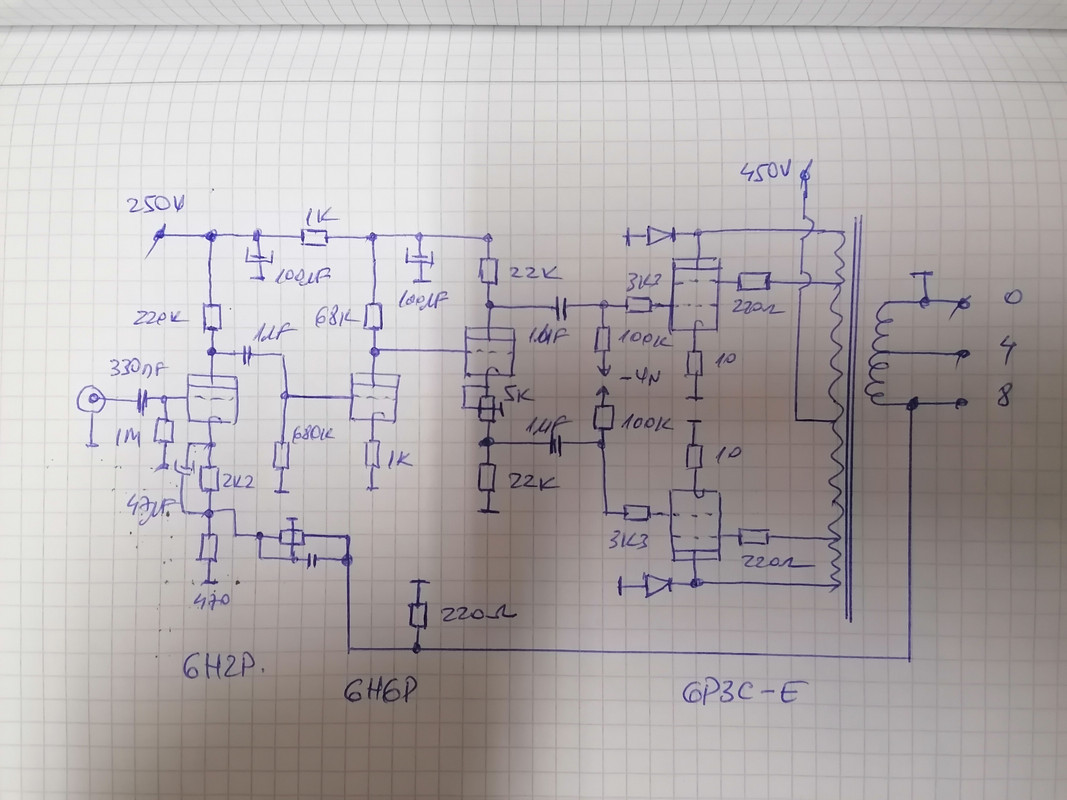 450V
250V
1K
100µF
100µF
22K
3K3
220Ω
0
220K
1µF
68K
1µF
100K
330nF
10
4
-4N
5K
8
1M
680K
1µF
100K
1K
10
2K2
22K
47µF
3K3
220Ω
470
220Ω
6H2P.
6H6P
6P3C-E